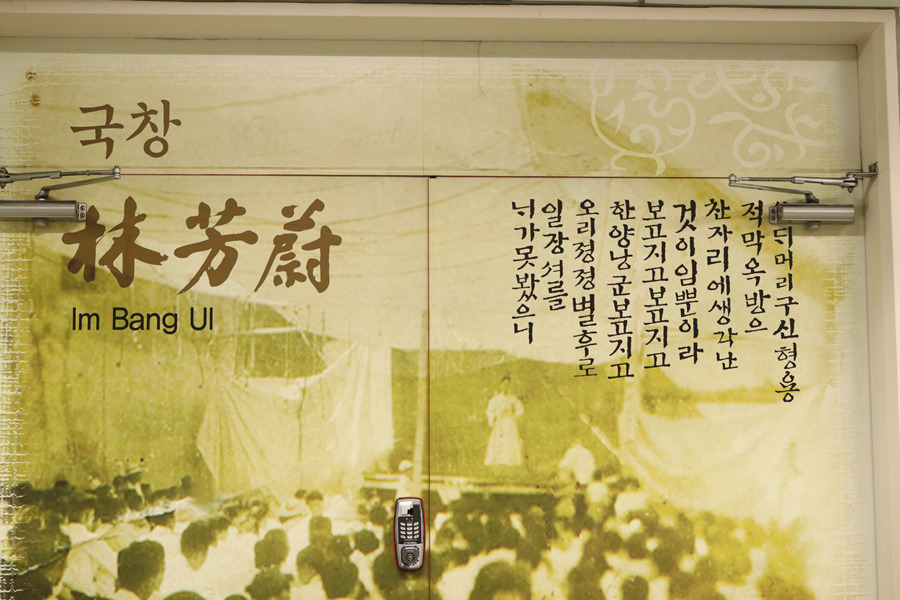 국창
林芳蔚
Im Bang Ul
머리구신형용
적막옥방으
찬자리에생각난
것이임뿐이라
보고지고보고지고
한양낭군보고지고
오리졍졍별후로
일장셔를
가못봤으니